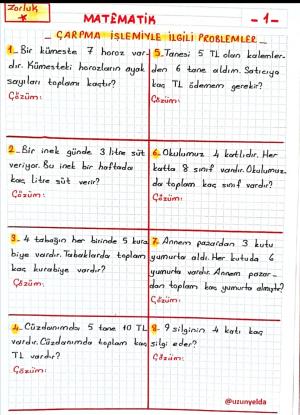 Zorluk
*
MATEMATİK
- 1 -
ÇARPMA İŞLEMİYLE İLGİLİ PROBLEMLER
1- Bir kümeste 7 horoz var-
dır. Kümesteki horozların ayak
sayıları toplamı kaçtır?
Çözüm:
2- Bir inek günde 3 litre süt
veriyor. Bu inek bir haftada
kaç litre süt verir?
Çözüm:
3- 4 tabağın her birinde 5 kura
biye vardır. Tabaklarda toplam
kaç kurabiye vardır?
Çözüm:
4- Cüzdanımda 5 tane 10 TL
vardır. Cüzdanımda toplam kaç
TL vardır?
Çözüm:
5- Tanesi 5 TL olan kalemler-
den 6 tane aldım. Satıcıya
kaç TL ödemem gerekir?
Çözüm:
6- Okulumuz 4 katlıdır. Her
katta 8 sınıf vardır. Okulumuz
da toplam kaç sınıf vardır?
Çözüm:
7- Annem pazardan 3 kutu
yumurta aldı. Her kutuda 6
yumurta vardır. Annem pazar-
dan toplam kaç yumurta almıştır?
Çözüm:
8- 9 silginin 4 katı kaç
silgi eder?
Çözüm:
@uzunyelda